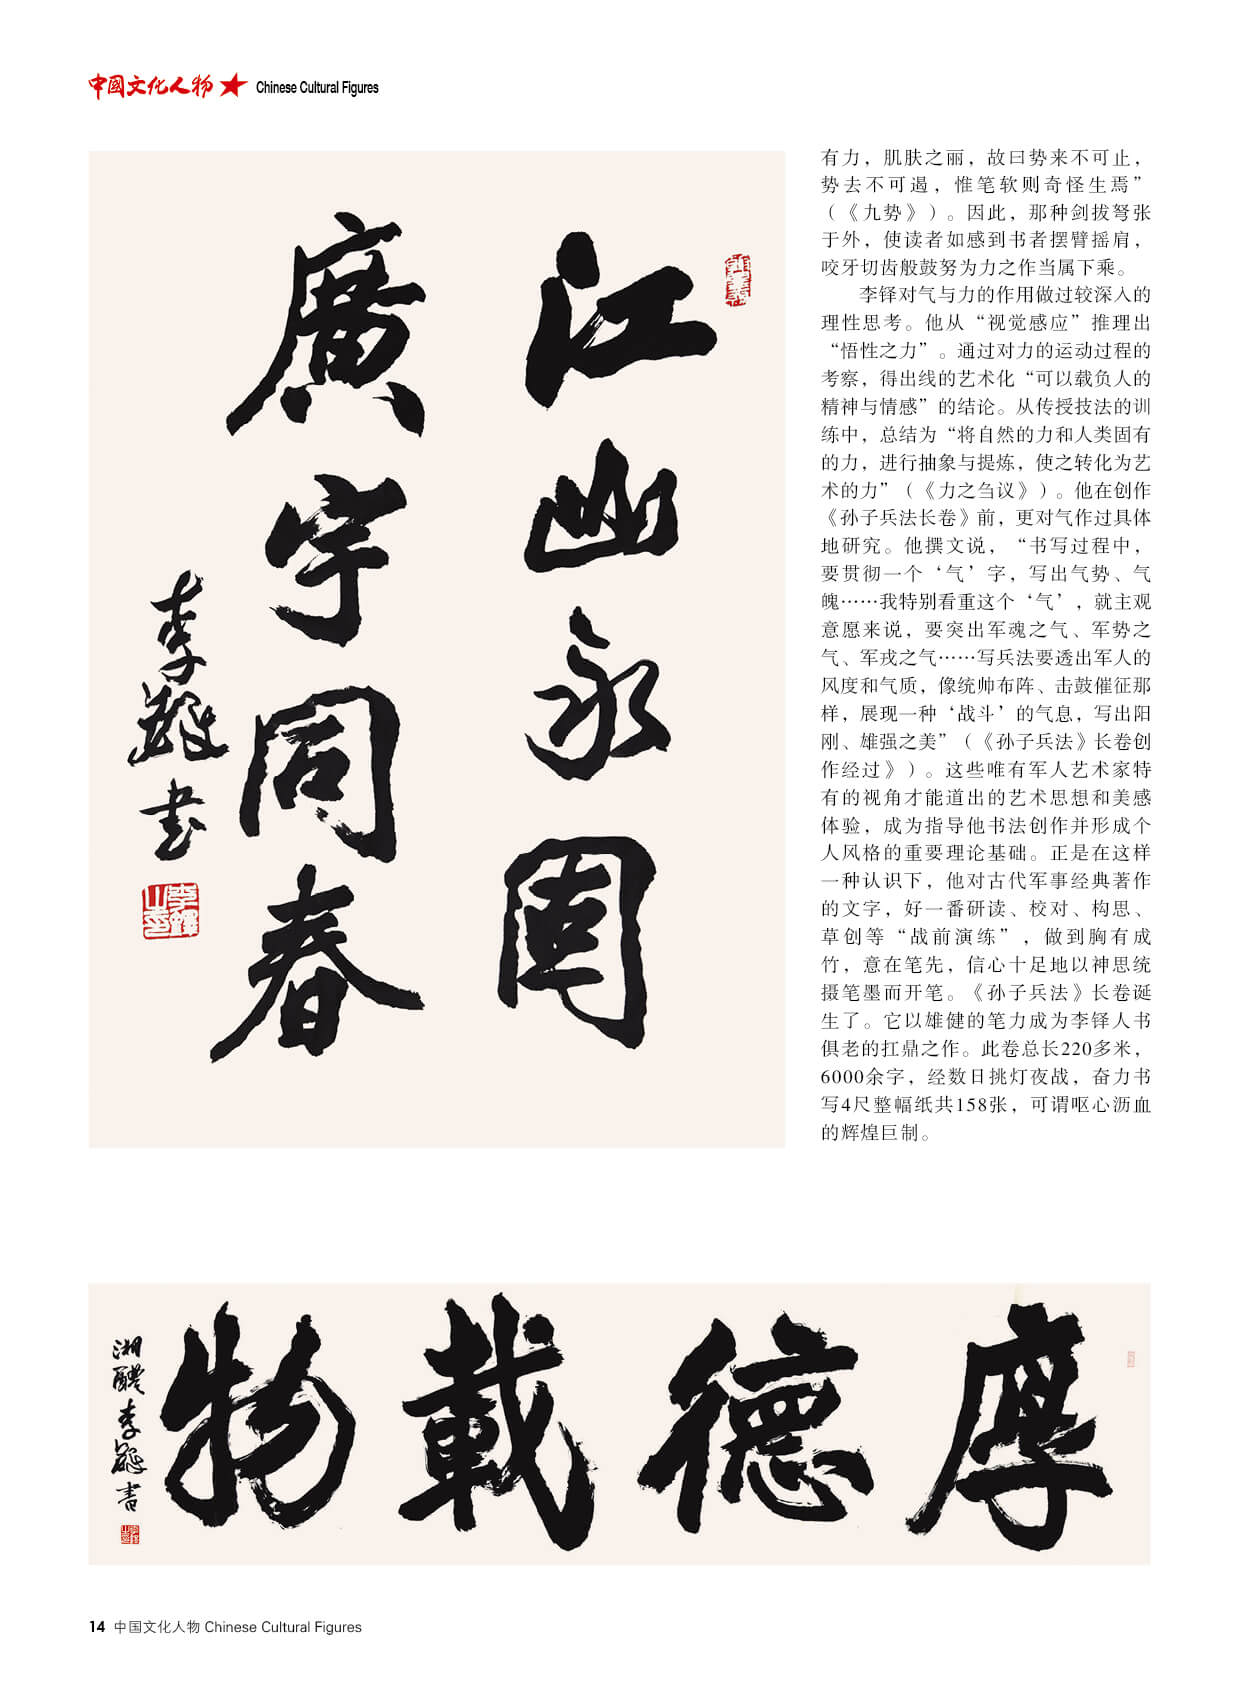 中國文化人物 Chinese Cultural Figures
江山永固
廣宇同春
李鐸书
有力，肌肤之丽，故曰势来不可止，
势去不可遏，惟笔软则奇怪生焉”
（《九势》）。因此，那种剑拔弩张
于外，使读者如感到书者摆臂摇肩，
咬牙切齿般鼓努为力之作当属下乘。
李铎对气与力的作用做过较深入的
理性思考。他从“视觉感应”推理出
“悟性之力”。通过对力的运动过程的
考察，得出线的艺术化“可以载负人的
精神与情感”的结论。从传授技法的训
练中，总结为“将自然的力和人类固有
的力，进行抽象与提炼，使之转化为艺
术的力”（《力之刍议》）。他在创作
《孙子兵法长卷》前，更对气作过具体
地研究。他撰文说，“书写过程中，
要贯彻一个‘气’字，写出气势、气
魄……我特别看重这个‘气’，就主观
意愿来说，要突出军魂之气、军势之
气、军戎之气……写兵法要透出军人的
风度和气质，像统帅布阵、击鼓催征那
样，展现一种‘战斗’的气息，写出阳
刚、雄强之美”（《孙子兵法》长卷创
作经过》）。这些唯有军人艺术家特
有的视角才能道出的艺术思想和美感
体验，成为指导他书法创作并形成个
人风格的重要理论基础。正是在这样
一种认识下，他对古代军事经典著作
的文字，好一番研读、校对、构思、
草创等“战前演练”，做到胸有成
竹，意在笔先，信心十足地以神思统
摄笔墨而开笔。《孙子兵法》长卷诞
生了。它以雄健的笔力成为李铎人书
俱老的扛鼎之作。此卷总长220多米，
6000余字，经数日挑灯夜战，奋力书
写4尺整幅纸共158张，可谓呕心沥血
的辉煌巨制。
厚德載物
湘醴李鐸書
14 中国文化人物 Chinese Cultural Figures